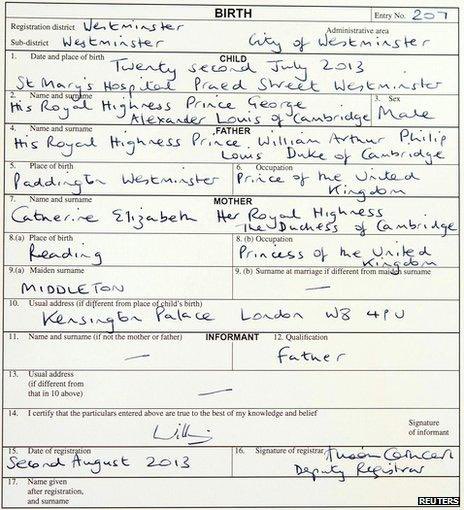 BIRTH
Entry No. 207
Registration district Westminster
Administrative area
Sub-district Westminster
City of Westminster
1. Date and place of birth
CHILD
Twenty second July 2013
St Mary's Hospital Praed Street Westminster
2. Name and surname
3. Sex
His Royal Highness Prince George
Alexander Louis of Cambridge
Male
4. Name and surname
FATHER
His Royal Highness Prince William Arthur Philip
Louis Duke of Cambridge
5. Place of birth
6. Occupation
Paddington Westminster
Prince of the United
Kingdom
7. Name and surname
MOTHER
Catherine Elizabeth Her Royal Highness
The Duchess of Cambridge
8.(a) Place of birth
8. (b) Occupation
Reading
Princess of the United
Kingdom
9.(a) Maiden surname
9. (b) Surname at marriage if different from maiden surname
MIDDLETON
—
10. Usual address (if different from place of child's birth)
Kensington Palace London W8 4PU
11. Name and surname (if not the mother or father)
INFORMANT
12. Qualification
—
Father
13. Usual address
(if different from
that in 10 above)
—
14. I certify that the particulars entered above are true to the best of my knowledge and belief
Signature
of informant
15. Date of registration
16. Signature of registrar
Second August 2013
Deputy Registrar
17. Name given
after registration,
and surname
REUTERS